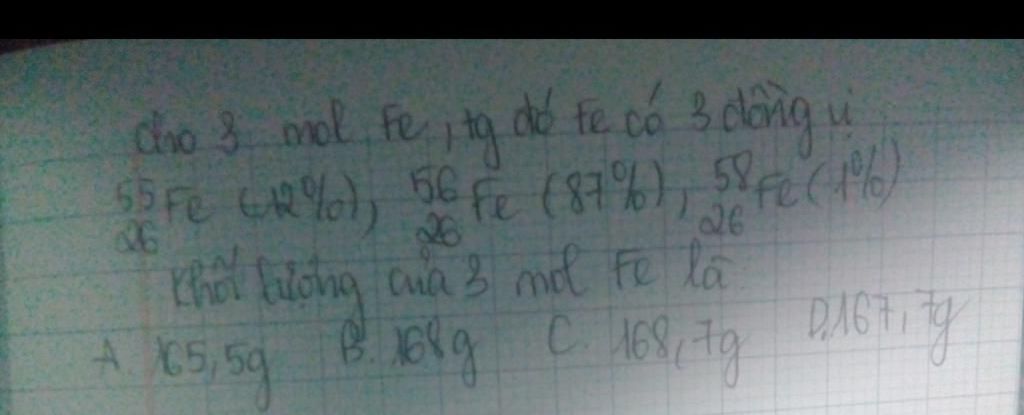 cho 3 mol Fe, tg đó Fe có 3 đồng vị
⁵⁵₂₆Fe (12%), ⁵⁶₂₆Fe (87%), ⁵⁸₂₆Fe (1%)
khối lượng của 3 mol Fe là
A. 165,5g B. 168g C. 168,7g D. 167,7g